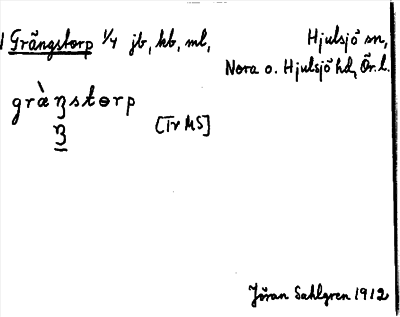 1 Grängstorp 1/4 jb, kb, ml,
Hjulsjö sn,
Nora o. Hjulsjö hd, Ör. l.
gràŋstɵrp
ŋ
[Tr MS]
Jöran Sahlgren 1912